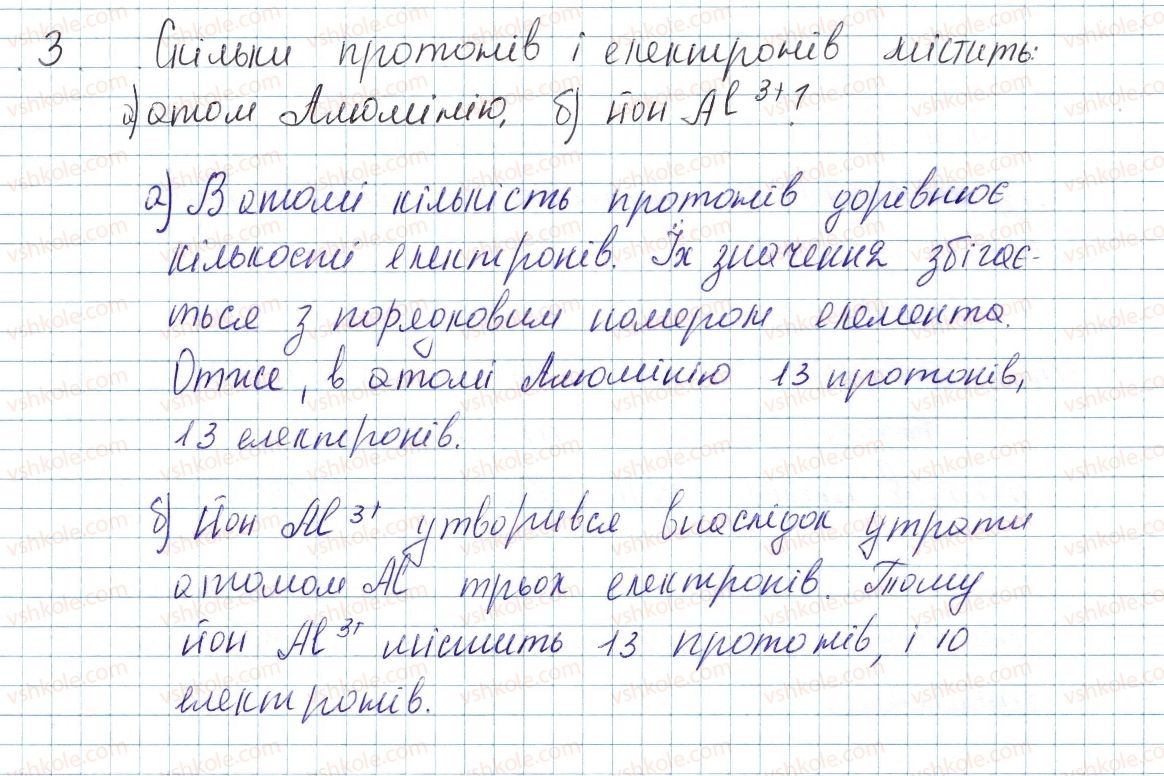 3. Скільки протонів і електронів містить:
а) атом Алюмінію, б) йон Al³⁺?
а) В атомі кількість протонів дорівнює
кількості електронів. Їх значення збігає-
ться з порядковим номером елемента.
Отже, в атомі Алюмінію 13 протонів,
13 електронів.
б) Йон Al³⁺ утворився внаслідок утрати
атомом Al трьох електронів. Тому
йон Al³⁺ містить 13 протонів, і 10
електронів.